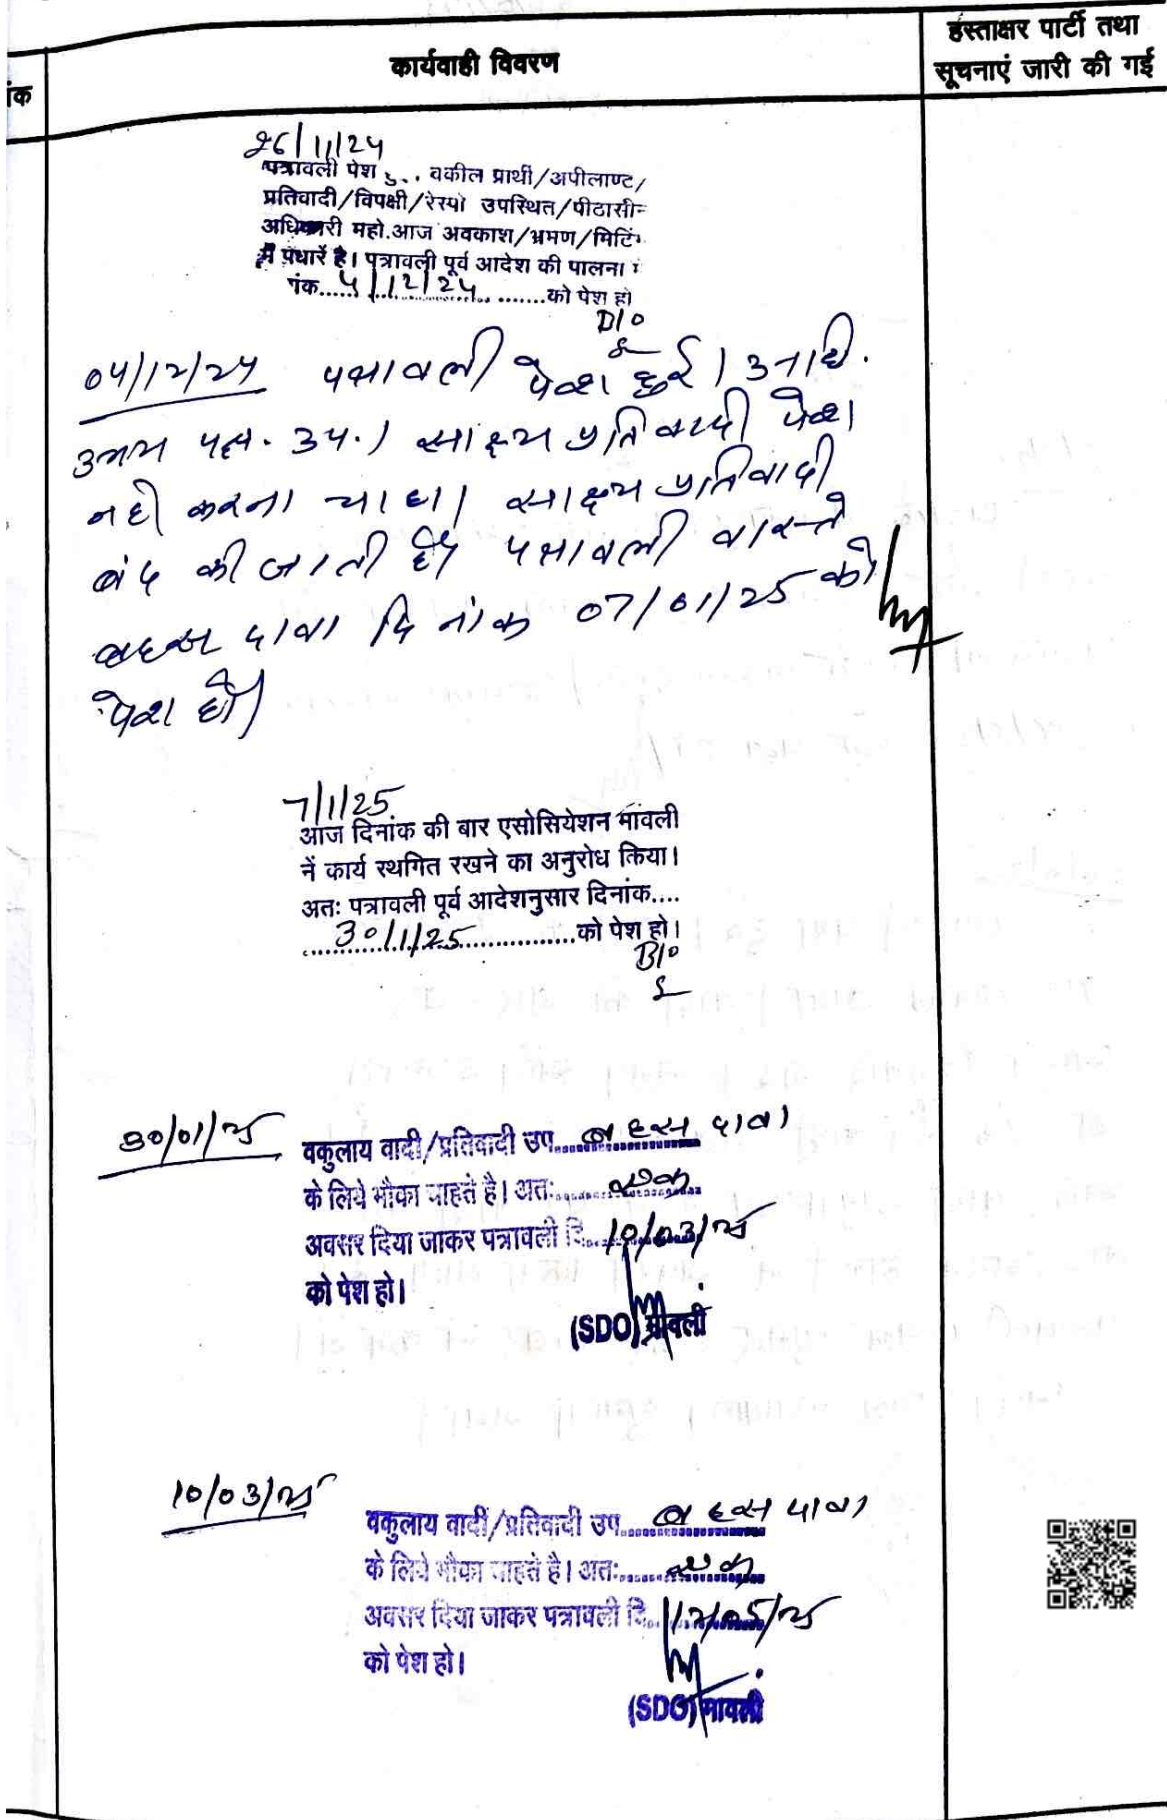 हस्ताक्षर पार्टी तथा
कार्यवाही विवरण
सूचनाएं जारी की गई
ंक
26/11/24
पत्रावली पेश वकील प्रार्थी/अपीलाण्ट/
प्रतिवादी/विपक्षी/रेस्पो उपस्थित/पीठासीन
अधिकारी महो.आज अवकाश/भ्रमण/मिटिंग
में पधारें है। पत्रावली पूर्व आदेश की पालना में
नांक...... 4/12/24 .......को पेश हो
B/o
04/12/24 पत्रावली पेश हुई। अधि.
उभय पक्ष. उप.। साक्ष्य प्रतिवादी पेश
नही करना चाहा। साक्ष्य प्रतिवादी
बंद की जाती है। पत्रावली वास्ते
बहस दावा दिनांक 07/01/25 को
पेश हो।
7/1/25
आज दिनांक की बार एसोसियेशन मावली
नें कार्य स्थगित रखने का अनुरोध किया।
अतः पत्रावली पूर्व आदेशनुसार दिनांक....
30/1/25 को पेश हो।
B/o
30/01/25 वकुलाय वादी/प्रतिवादी उप.... बहस दावा
के लिये मौका चाहते है। अतः..... एक
अवसर दिया जाकर पत्रावली दि... 10/03/25
को पेश हो।
(SDO) मावली
10/03/25
वकुलाय वादी/प्रतिवादी उप.... बहस दावा
के लिये मौका चाहते है। अतः..... एक
अवसर दिया जाकर पत्रावली दि. 12/05/25
को पेश हो।
(SDO) मावली